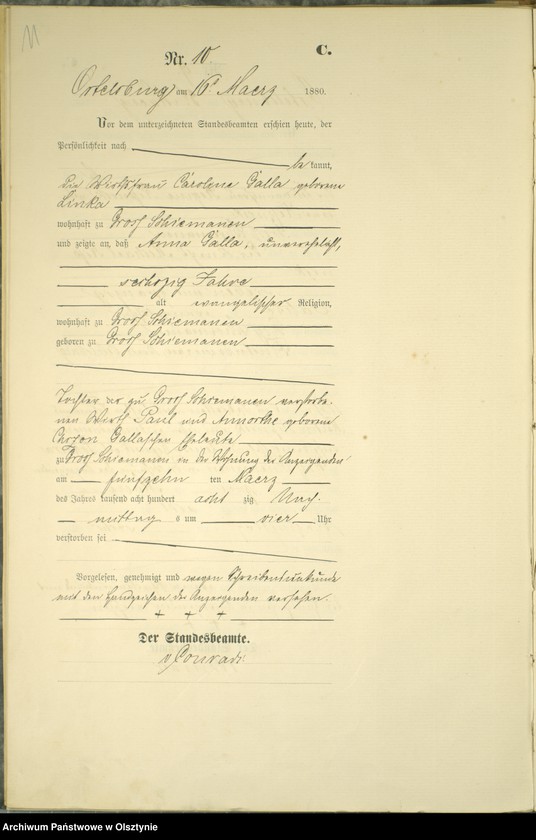 11
C.
Nr. 10.
Ortelsburg am 16t Maerz 1880.
Vor dem unterzeichneten Standesbeamten erschien heute, der
Persönlichkeit nach be kannt,
die Wirthsfrau Carolina Galla geborene
Linka
wohnhaft zu Groß Schiemanen
und zeigte an, daß Anna Galla, unverehelicht,
sechszig Jahre
alt evangelischer Religion,
wohnhaft zu Groß Schiemanen
geboren zu Groß Schiemanen
Tochter der zu Groß Schiemanen verstorbe-
nen Wirth Paul und Annorthe geborene
Gallaschen Eheleute
zu Groß Schiemanen in der Wohnung der Anzeigenden
am fünfzehn ten Maerz
des Jahres tausend acht hundert acht zig Nach-
mittag s um vier Uhr
verstorben sei
Vorgelesen, genehmigt und wegen Schreibensunkunde
mit den Handzeichen der Anzeigenden versehen.
+ + +
Der Standesbeamte.
v Conradi
Archiwum Państwowe w Olsztynie